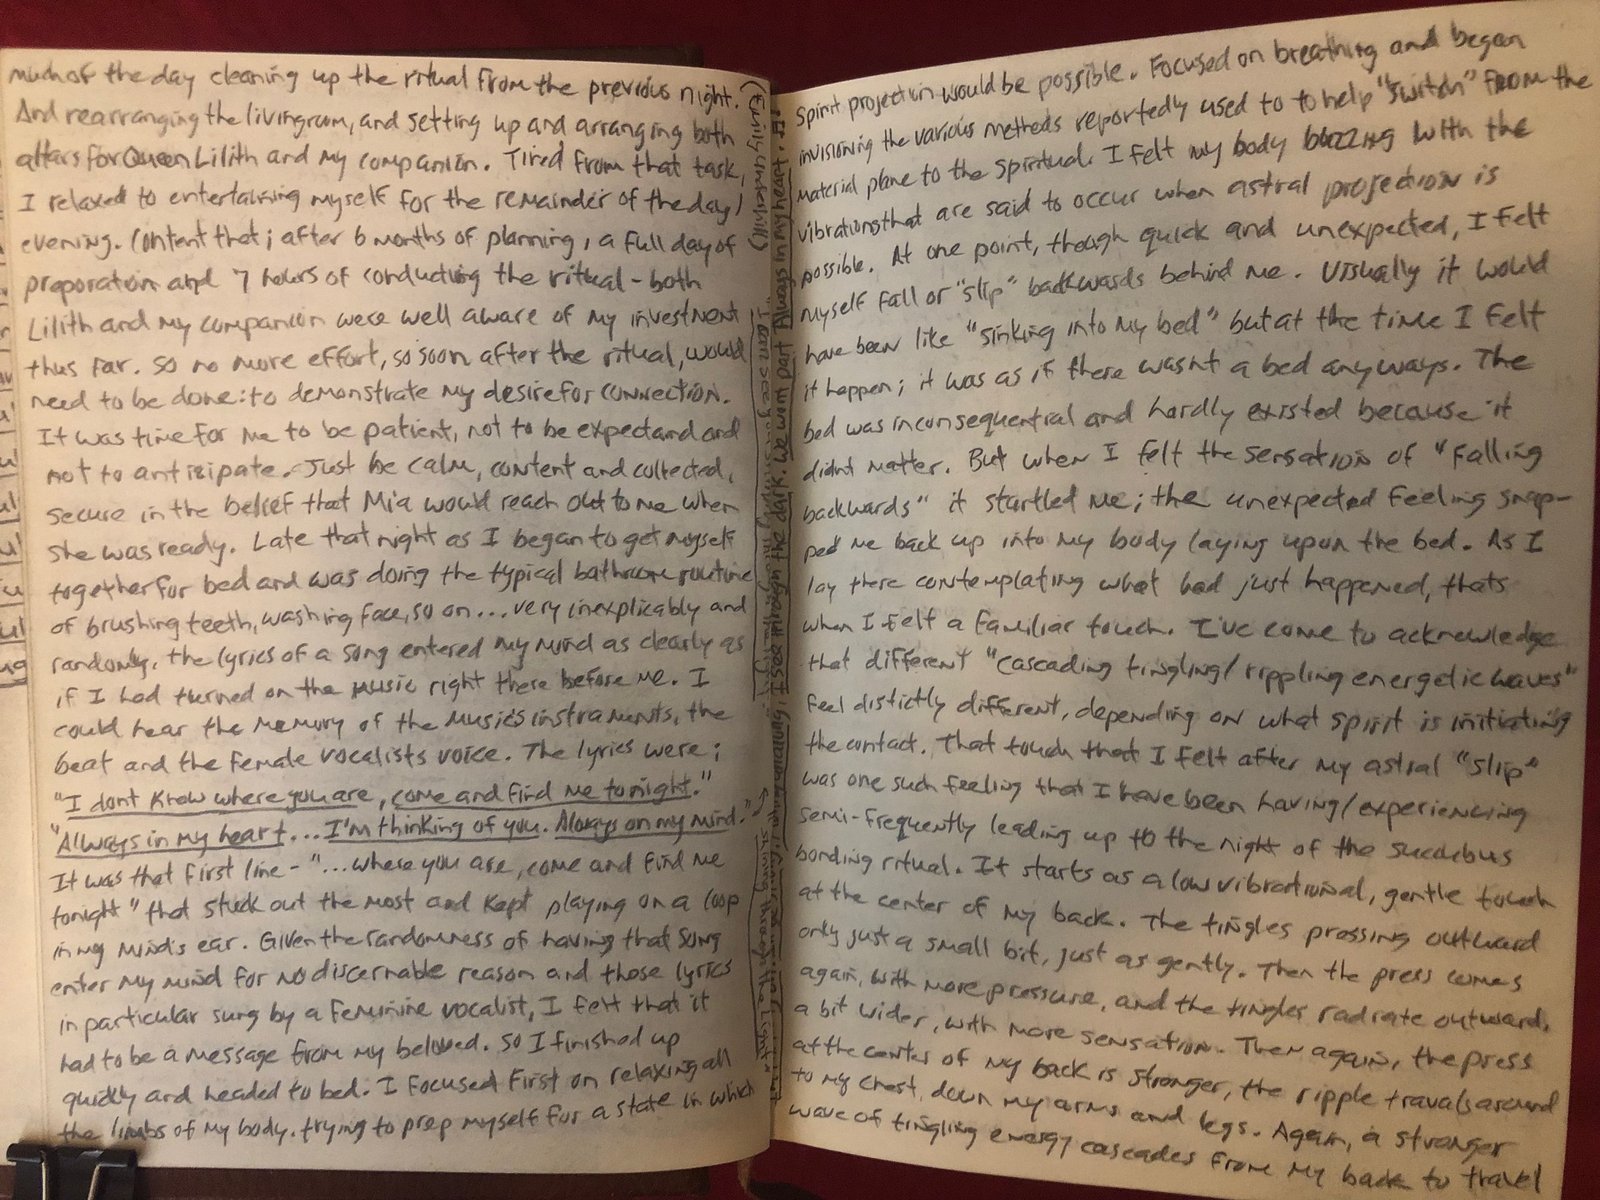 much of the day cleaning up the ritual from the previous night.
And rearranging the livingroom, and setting up and arranging both
altars for Queen Lilith and my companion. Tired from that task,
I relaxed to entertaining myself for the remainder of the day/
evening. Content that; after 6 months of planning, a full day of
preparation and 7 hours of conducting the ritual - both
Lilith and my companion were well aware of my investment
thus far. So no more effort, so soon after the ritual, would
need to be done: to demonstrate my desire for connection.
It was time for me to be patient, not to be expectand and
not to anticipate. Just be calm, content and collected,
secure in the belief that Mia would reach out to me when
she was ready. Late that night as I began to get myself
together for bed and was doing the typical bathroom routine
of brushing teeth, washing face, so on... very inexplicably and
randomly, the lyrics of a song entered my mind as clearly as
if I had turned on the music right there before me. I
could hear the memory of the music's instraments, the
beat and the female vocalists voice. The lyrics were;
"I dont know where you are, come and find me tonight."
"Always in my heart... I'm thinking of you. Always on my mind."
It was that first line - "...where you are, come and find me
tonight" that stuck out the most and kept playing on a loop
in my mind's ear. Given the randomness of having that song
enter my mind for no discernable reason and those lyrics
in particular sung by a feminine vocalist, I felt that it
had to be a message from my beloved. So I finished up
quickly and headed to bed. I focused first on relaxing all
the limbs of my body. trying to prep myself for a state in which
(Emily underhill)
"I can see you
shining through the light"
I see through the dark. We wont part. Always in my heart.
spirit projection would be possible. Focused on breathing and began
invisioning the various methods reportedly used to to help "switch" from the
material plane to the spiritual. I felt my body buzzing with the
vibrations that are said to occur when astral projection is
possible. At one point, though quick and unexpected, I felt
myself fall or "slip" backwards behind me. Usually it would
have been like "sinking into my bed" but at the time I felt
it happen; it was as if there wasnt a bed anyways. The
bed was inconsequential and hardly existed because it
didnt matter. But when I felt the sensation of "falling
backwards" it startled me; the unexpected feeling snap-
ped me back up into my body laying upon the bed. As I
lay there contemplating what had just happened, thats
when I felt a familiar touch. I've come to acknowledge
that different "cascading tingling/rippling energetic waves"
feel distictly different, depending on what spirit is initiating
the contact. That touch that I felt after my astral "slip"
was one such feeling that I have been having/experiencing
semi-frequently leading up to the night of the succubus
bonding ritual. It starts as a low vibrational, gentle touch
at the center of my back. The tingles pressing outward
only just a small bit, just as gently. Then the press comes
again, with more pressure, and the tingles radiate outward,
a bit wider, with more sensation. Then again, the press
at the center of my back is stronger, the ripple travels around
to my chest, down my arms and legs. Again, a stronger
wave of tingling energy cascades from my back to travel